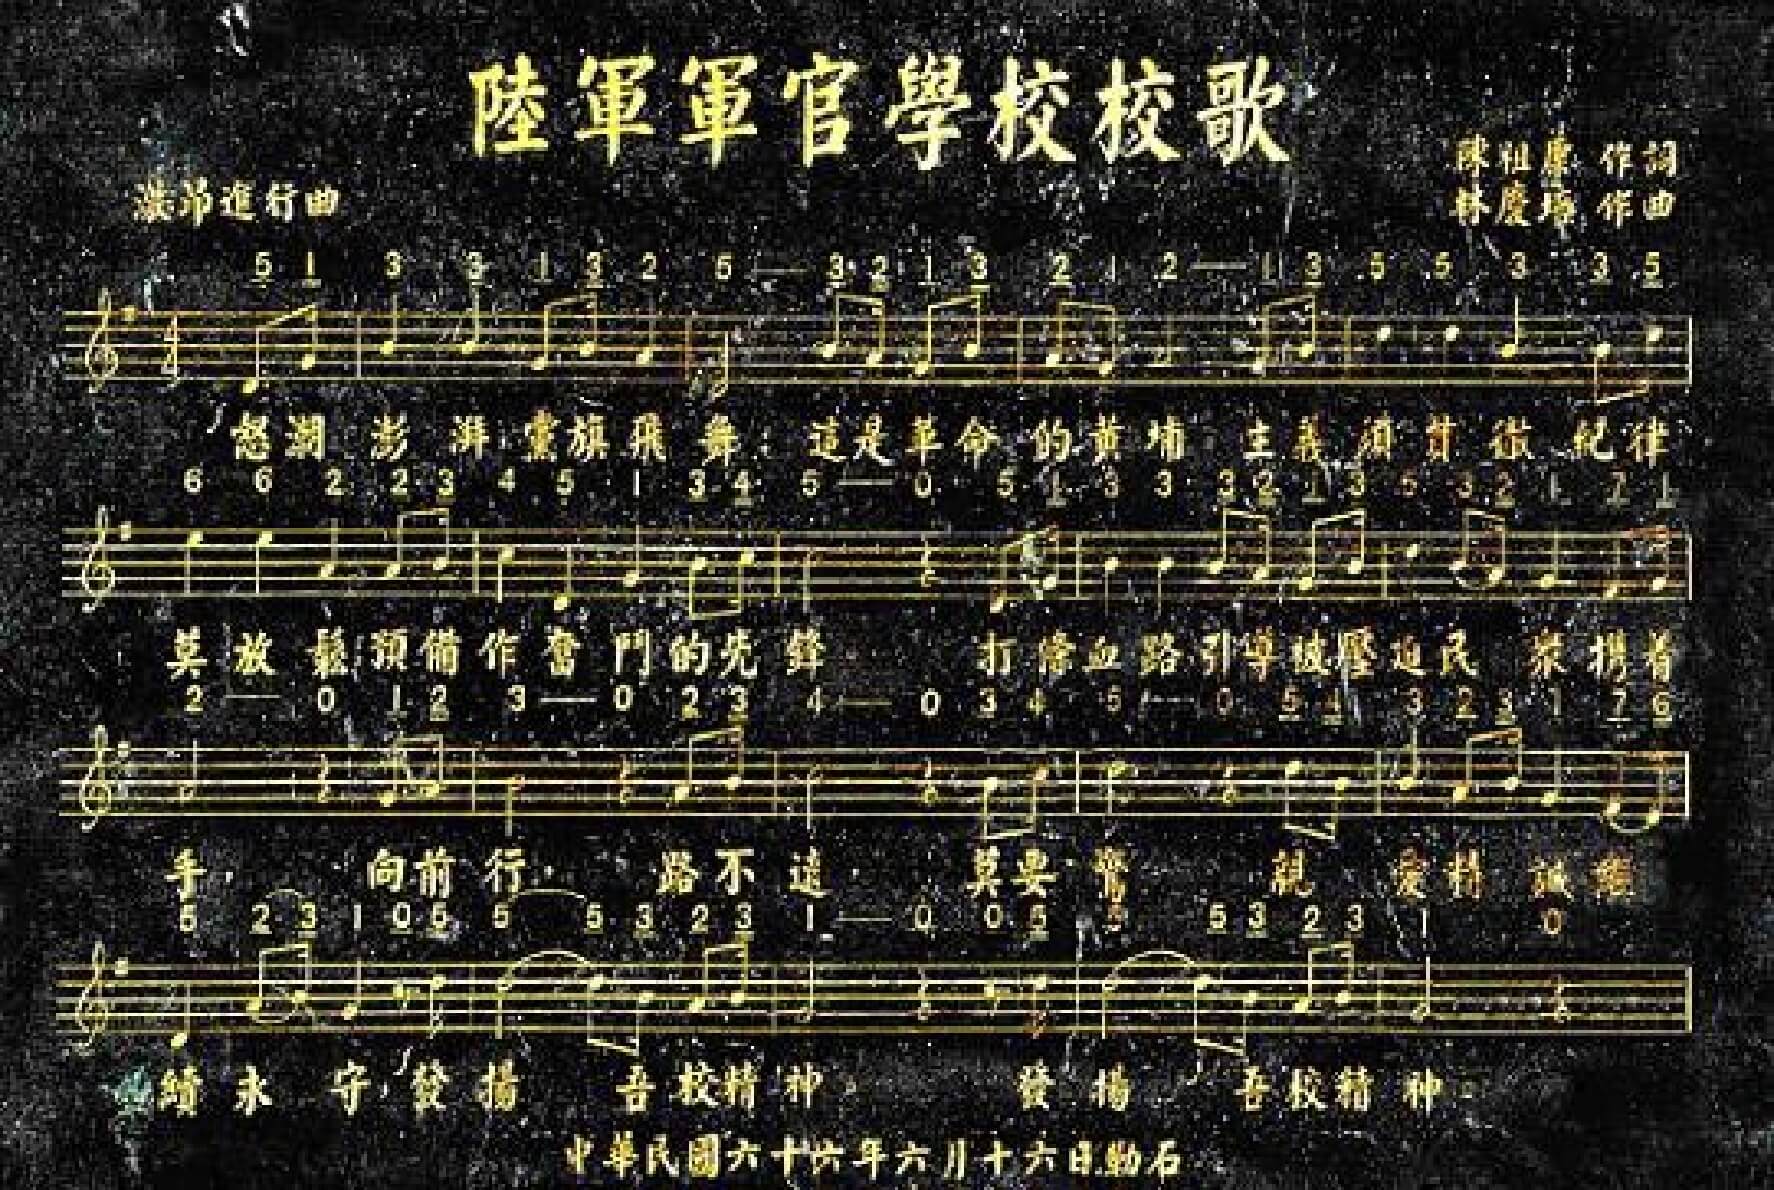 陸軍軍官學校校歌
陳祖康 作詞
林慶培 作曲
激昂進行曲
5 1 3 3 1 3 2 5 — 3 2 1 3 2 1 2 — 1 3 5 5 3 3 5
怒潮澎湃黨旗飛舞；這是革命的黃埔。主義須貫徹紀律
6 6 2 2 3 4 5 1 3 4 5 — 0 5 1 3 3 3 2 1 3 5 3 2 1 7 1
莫放鬆預備作奮鬥的先鋒。打條血路引導被壓迫民眾携着
2 — 0 1 2 3 — 0 2 3 4 — 0 3 4 5 — 0 5 4 3 2 3 1 7 6
手，向前行，路不遠，莫要驚 親愛精誠繼
5 2 3 1 0 5 5 5 3 2 3 1 — 0 0 5 5 5 3 2 3 1 0
續永守，發揚吾校精神，發揚吾校精神。
中華民國六十六年六月十六日勒石